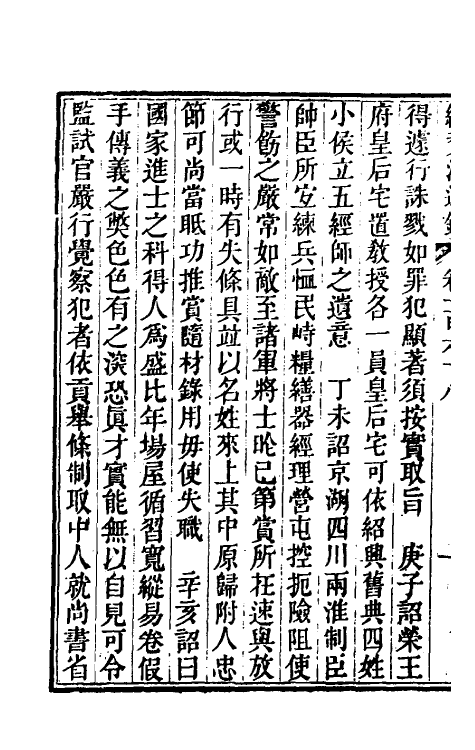 得遽行誅戮如罪犯顯著須按實取旨　庚子詔榮王
府皇后宅置敎授各一員皇后宅可依紹興舊典四姓
小侯立五經師之遺意　丁未詔京湖四川兩淮制臣
帥臣所宜練兵恤民峙糧繕器經理營屯控扼險阻使
警飭之嚴常如敵至諸軍將士除已第賞所在速與放
行或一時有失條具並以名姓來上其中原歸附人忠
節可尚當眡功推賞隨材錄用毋使失職　辛亥詔曰
國家進士之科得人爲盛比年場屋循習寬縱易卷假
手傳義之獘色色有之深恐眞才實能無以自見可令
監試官嚴行覺察犯者依貢舉條制取中人就尚書省